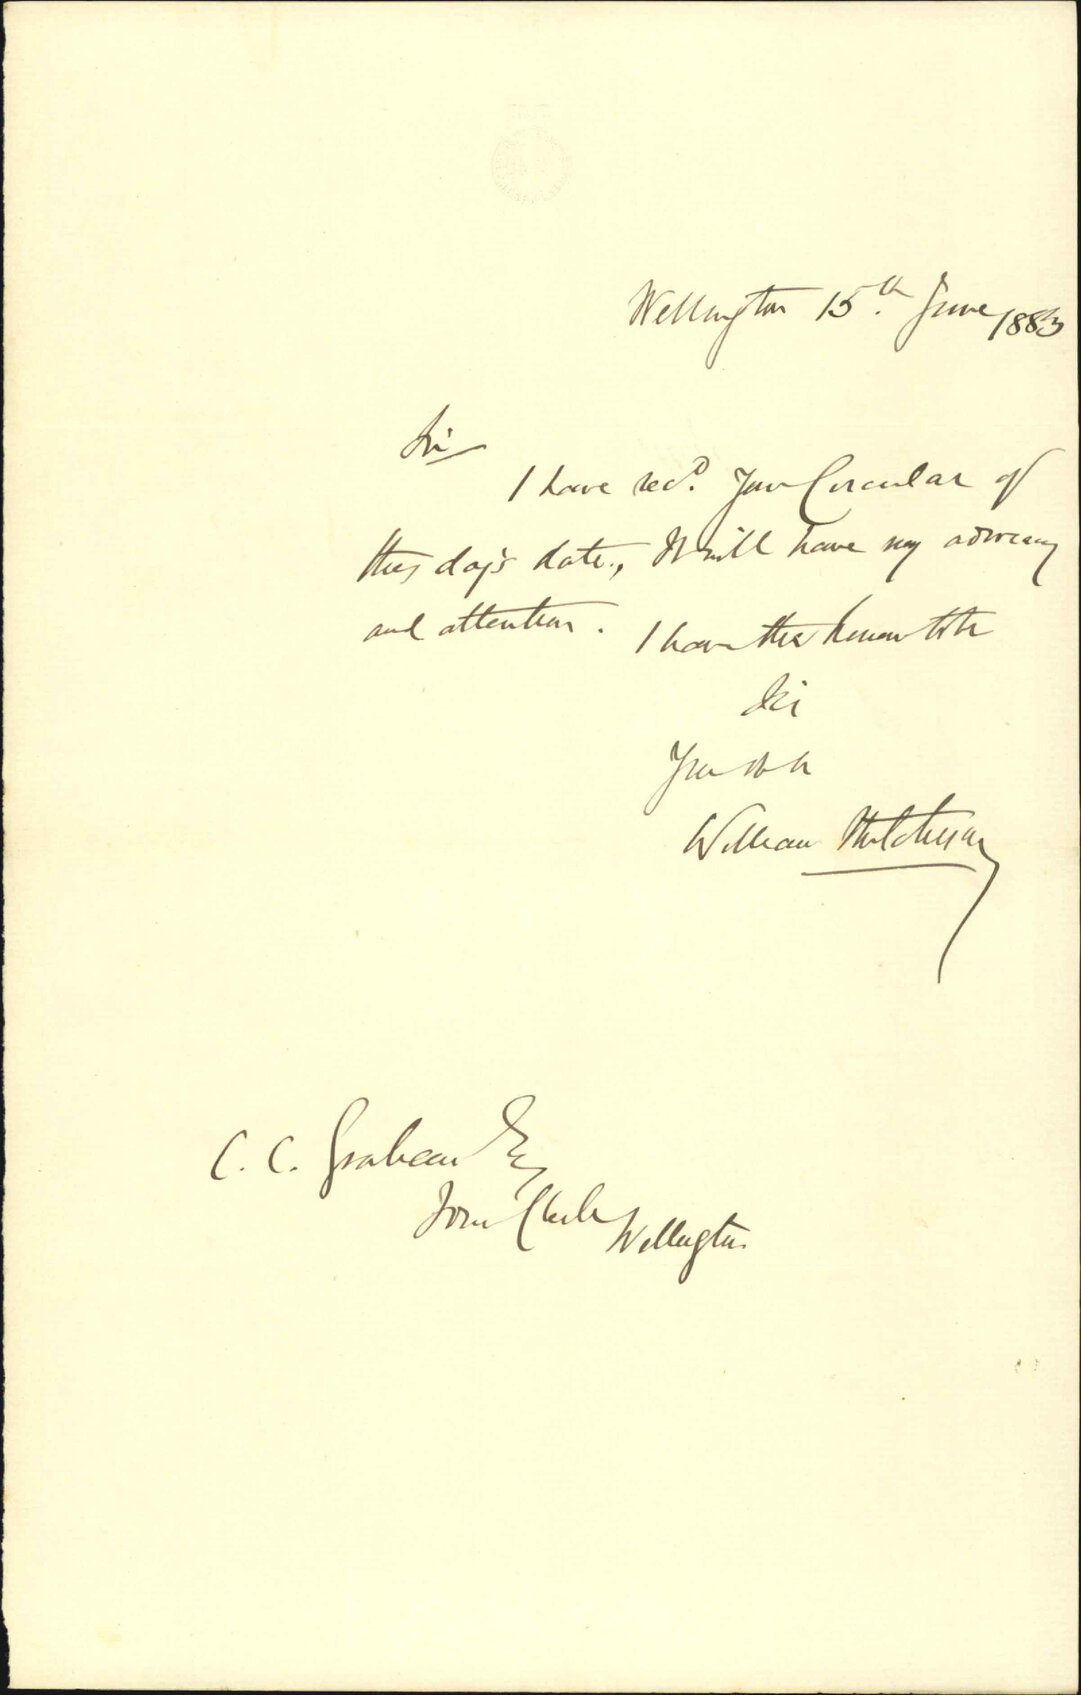 Wellington 15th. June 1883
Sir
I have recd. your Circular of
this day's date., It will have my advocacy
and attention. I have the honor to be
Sir
William Hutchison
C. C. Graham Esq
Town Clerk Wellington